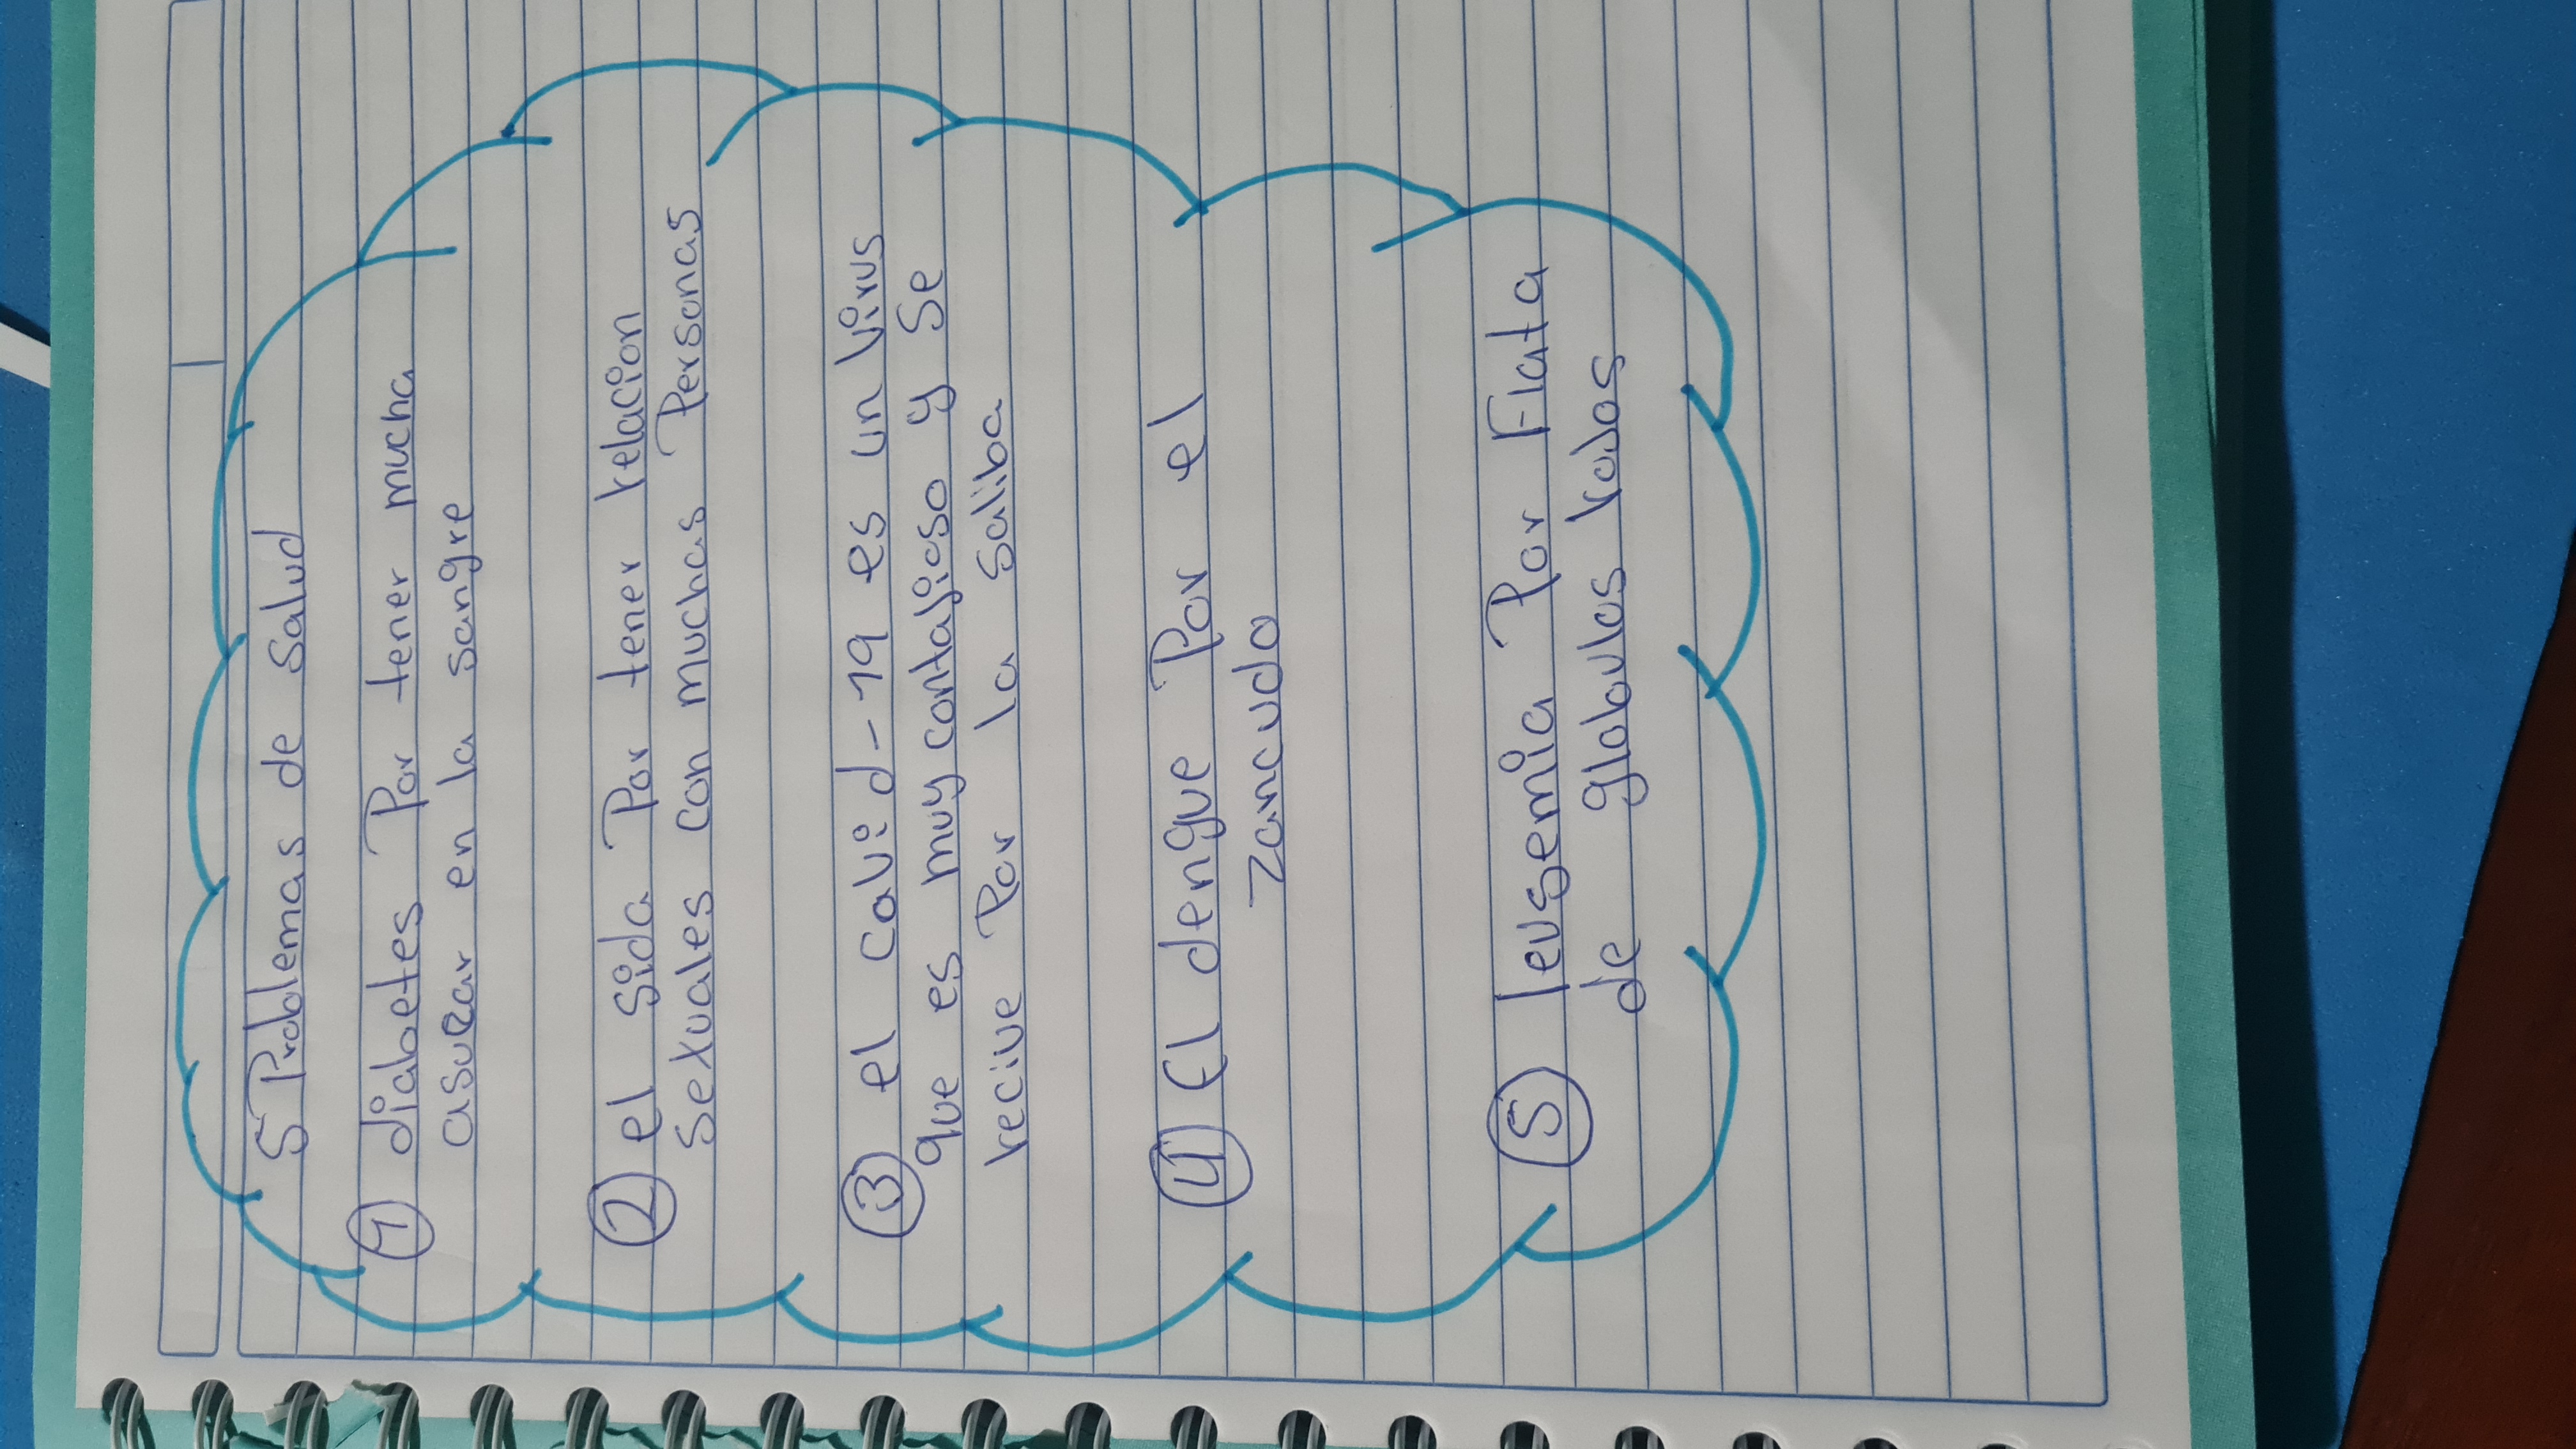 5 Problemas de Salud
1 diabetes Por tener mucha
asucar en la sangre
2 el sida Por tener relacion
sexuales con muchas Personas
3 el covid-19 es un virus
que es muy contajioso y se
recive Por la saliba
4 El dengue Por el
zancudo
5 leusemia Por Flata
de globulos rodos